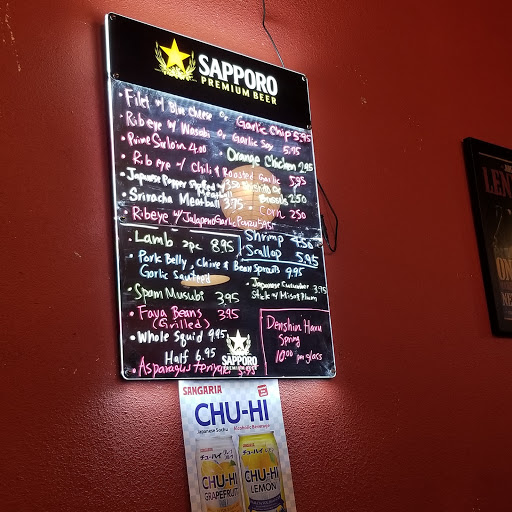 SAPPORO
PREMIUM BEER
• Filet w/ Blue Cheese or Garlic Chip 5.95
• Ribeye w/ Wasabi or Garlic Soy 5.95
• Prime Sirloin 4.00
Orange Chicken 2.95
• Ribeye w/ Chili & Roasted Garlic 5.95
• Japanese Pepper Stuffed w/ Meatball 3.50
• Shishito or
Brussels 2.50
• Sriracha Meatball 3.75
• Corn 2.50
• Ribeye w/ Jalapeno Garlic Ponzu 5.95
• Lamb 2pc 8.95
Shrimp 4.50
Scallop 5.95
• Pork Belly, Chive & Bean Sprouts
Garlic Sauteed 9.95
• Japanese Cucumber 3.95
Stick w/ Miso & Plum
• Spam Musubi 3.95
• Fava Beans 3.95
(Grilled)
• Whole Squid 9.95
Half 6.95
• Asparagus Teriyaki
Denshin Haru
Spring
10.00 per glass
SAPPORO
PREMIUM BEER
SANGARIA
CHU-HI
Japanese Sochu Alcoholic Beverage
チューハイ
CHU-HI
GRAPEFRUIT
チューハイ
CHU-HI
LEMON
LEN
ON